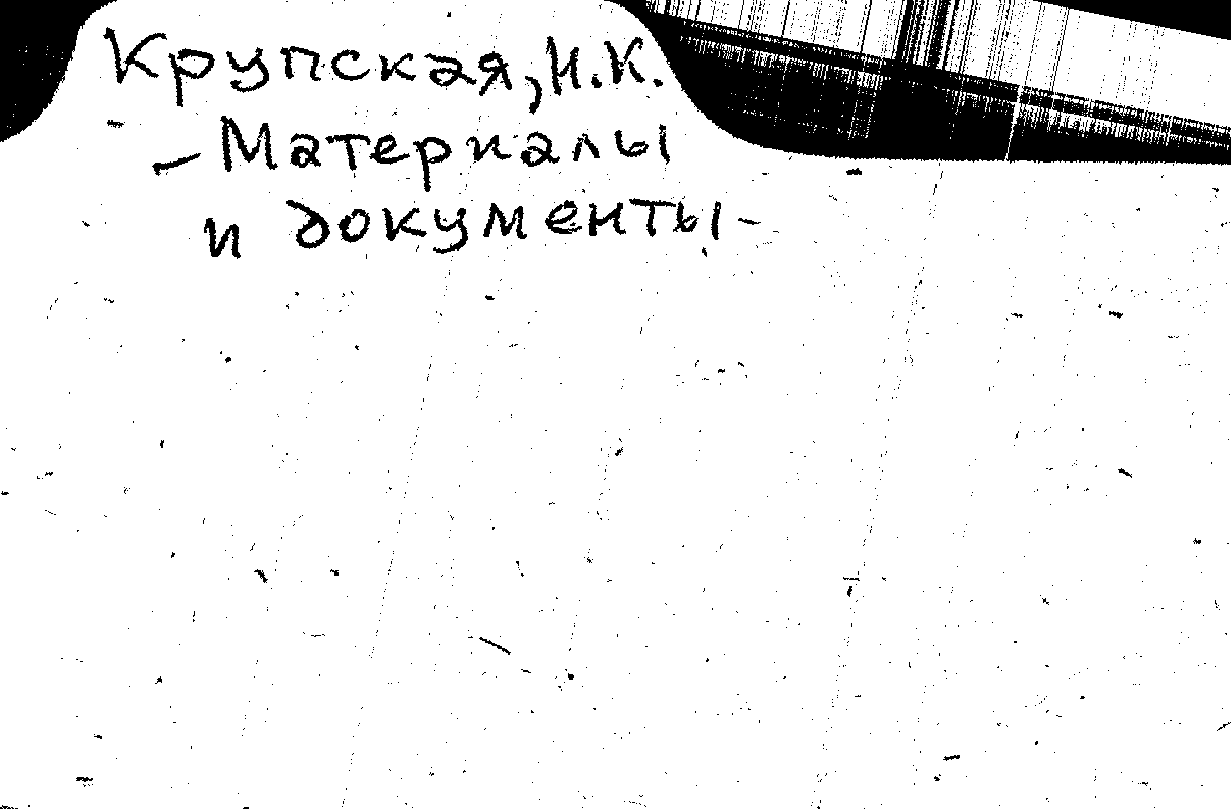 Крупская, Н.К.
- Материалы
и документы -